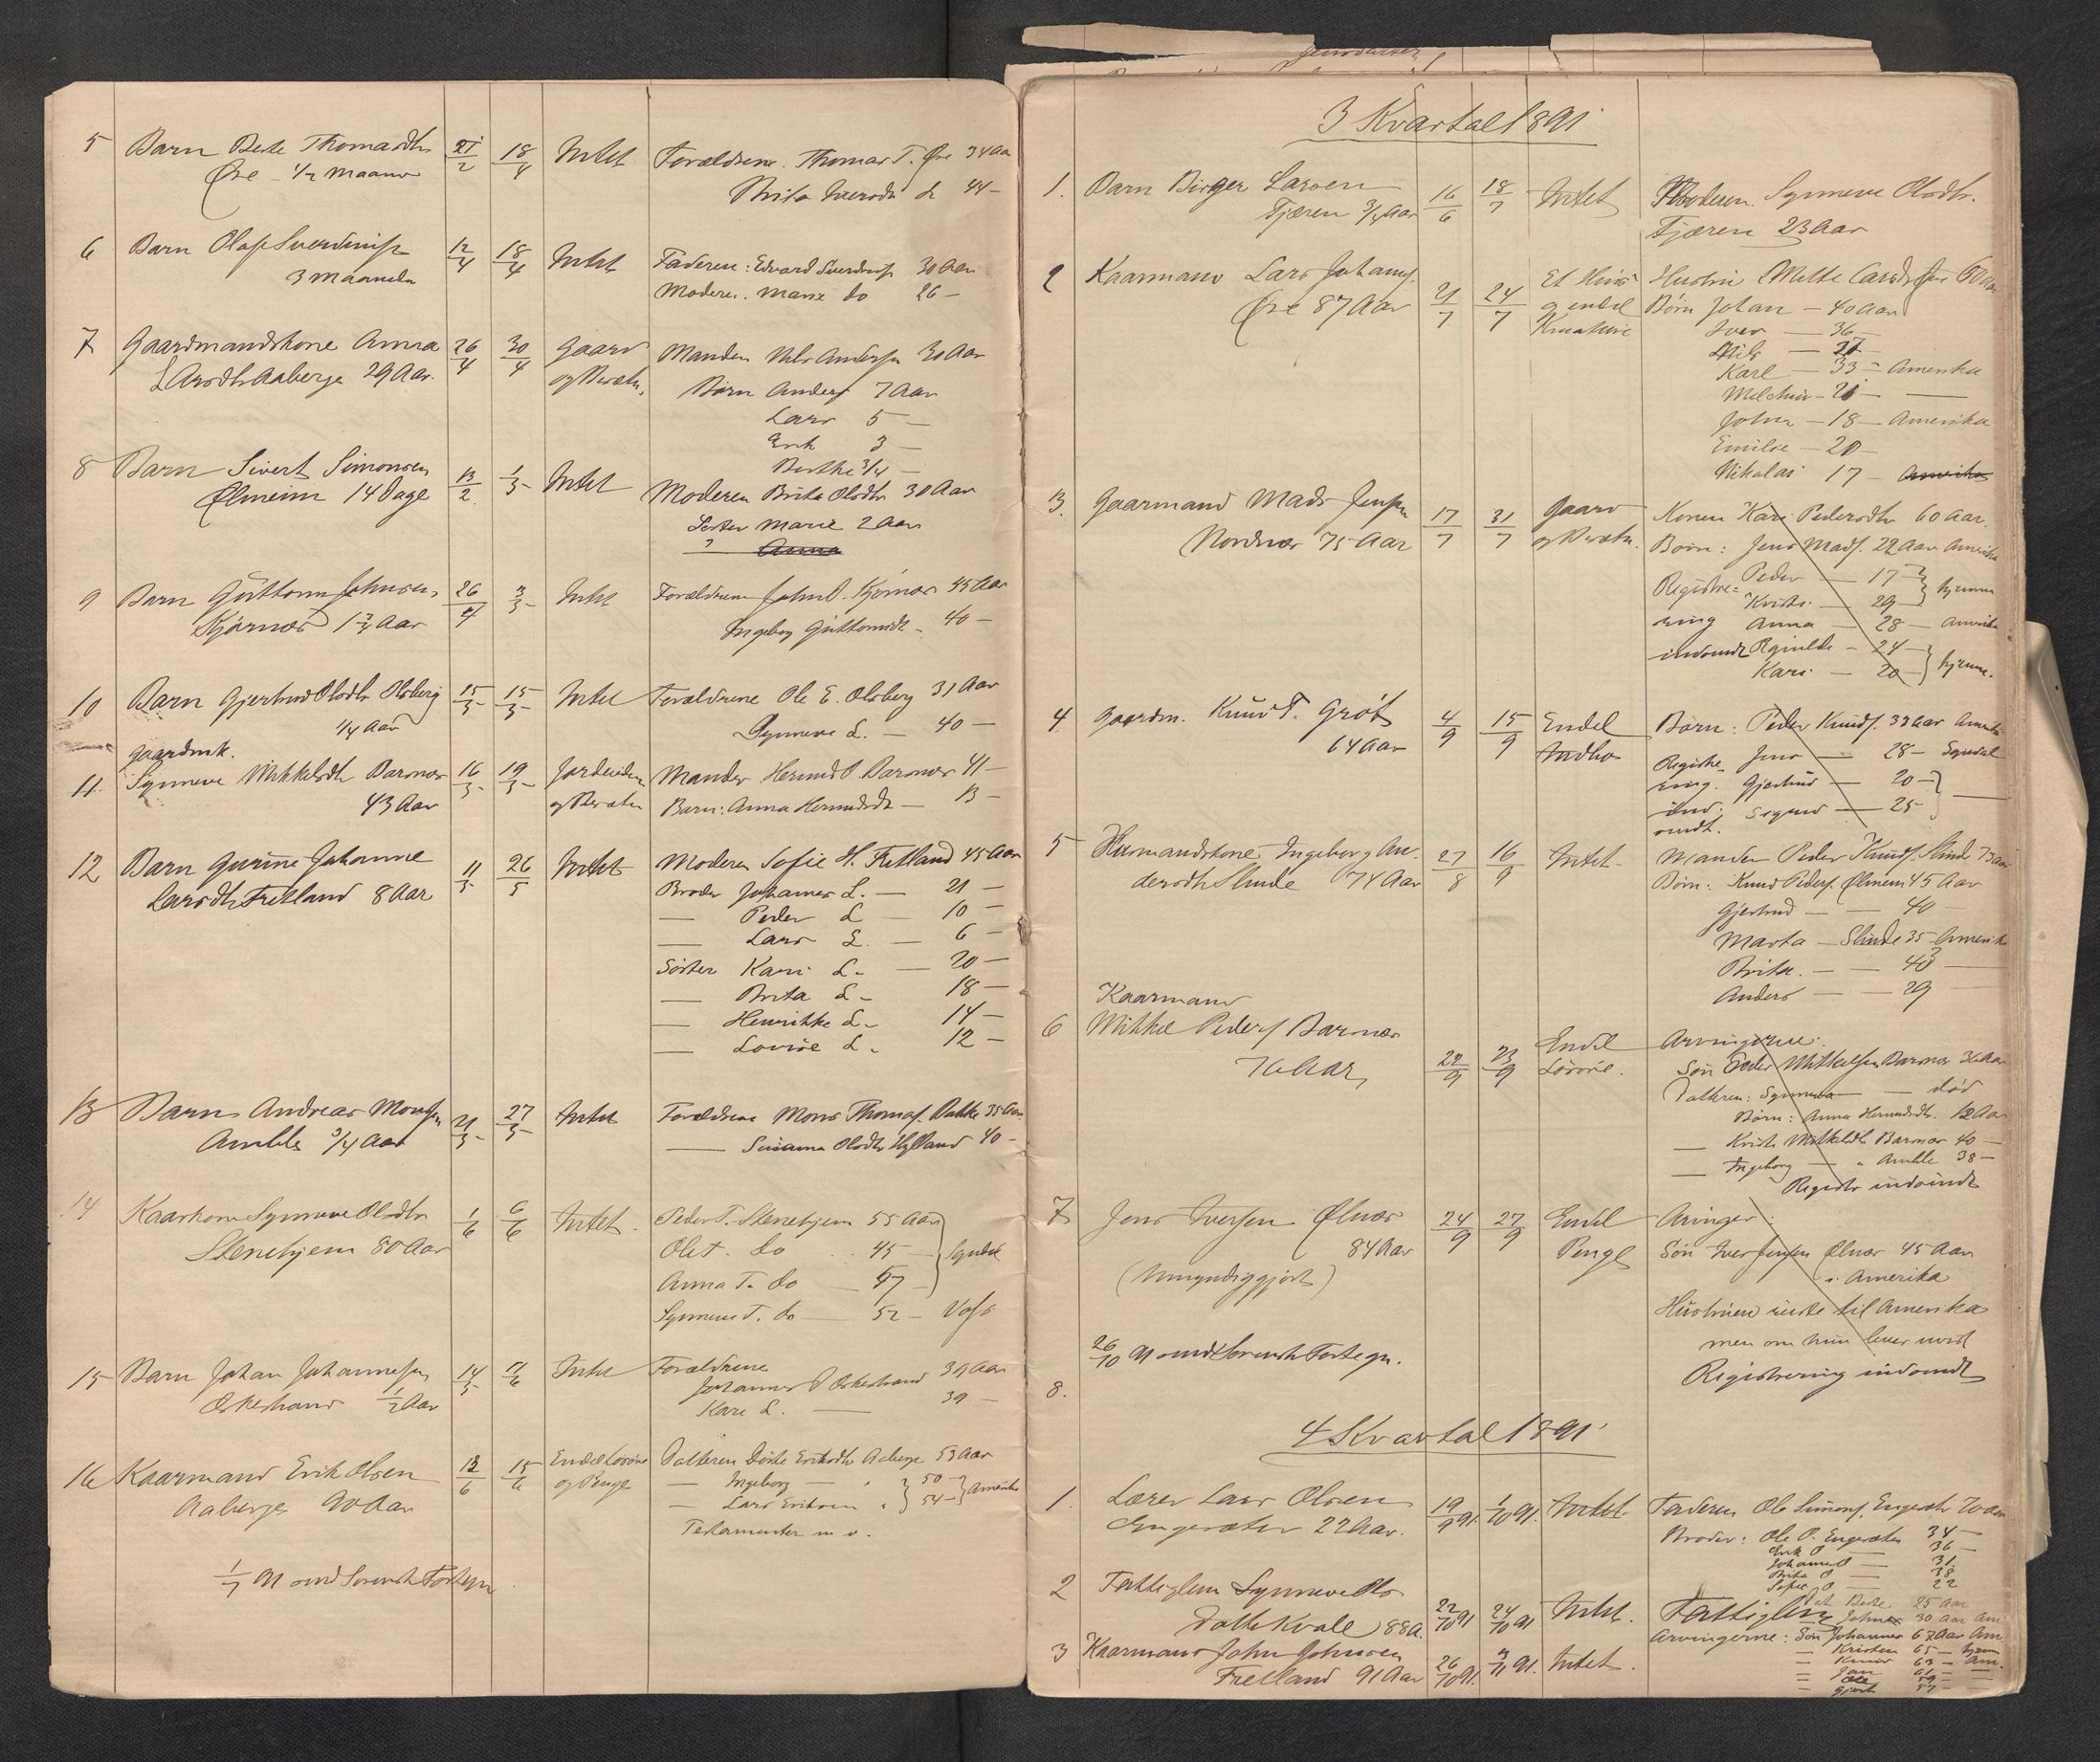 5 Barn Berte Thomasdtr 21/2 18/4 Intet Forældrene. Thomas T. Øre 34 Aar
Øre - 1/2 Maaned Brita Iversdtr 44 —
6 Barn Olaf Sverdrup 12/4 18/4 Intet Faderen: Edvard Sverdrup 30 Aar
3 Maaneder Moderen. Marie do 26 —
7 Gaardmandskone Anna 26/4 30/4 Gaard Manden Nils Andersen 30 Aar
Larsdtr Aaberge 29 Aar. og Besætn. Børn Anders 7 Aar
Lars 5 —
Erik 3 —
Berthe 3/4 —
8 Barn Sivert Simonsen 13/2 1/5 Intet Moderen Brita Olsdtr 30 Aar
Ølmeim 14 Dage Søster Marie 2 Aar
Anna
9 Barn Guttorm Johnsen 26/4 3/5 Intet Forældrene John O. Kjørnæs 45 Aar
Kjørnæs 1 3/4 Aar Ingeborg Guttormsdtr — 40 —
10 Barn Gjertrud Olsdtr Olsberg 15/5 15/5 Intet Forældrene Ole E. Olsberg 31 Aar
1/4 Aar Synneve L. — 40 —
gaardmk.
11. Synneve Mikkelsdtr Barsnæs 16/5 19/5 Jordeiendom Manden Hermund O. Barsnæs 41 —
43 Aar og Besætn Barn: Anna Hermundsdtr — 13 —
12 Barn Gurine Johanne 11/5 26/5 Intet Moderen Sofie H. Fretland 45 Aar
Larsdtr Fretland 8 Aar Broder Johannes L. — 21 —
— Peder L — 10 —
— Lars L. — 6 —
Søster Kari L. — 20 —
— Brita L. 18 —
— Henrikke L. 14 —
— Lovise L. 12 —
13 Barn Andreas Monsen 21/5 27/5 Intet Forældrene Mons Thomas. 35 Aar
Amble 3/4 Aar — Susanna Olsdtr Hylland 40 —
14 Kaarkone Synneve Olsdtr 1/6 6/6 Intet. Peder T. Stenehjem 55 Aar
Stenehjem 80 Aar Ole T. do 45 — Sogndal
Anna T. do — 47 —
Synneve T. do — 52 — Voss
15 Barn Johan Johannesen 14/5 11/6 Intet Forældrene
Eskestrand 1/2 Aar Johannes O Eskestrand 39 Aar
Kari L. — 39 —
16 Kaarmand Erik Olsen 12/6 15/6 Endel Løsøre Datteren Dorte Eriksdtr Aaberge 53 Aar
Aaberge 90 Aar og Penge — Ingeborg " 50 — Amerika
— Lars Eriksen " 54 —
Testamenter m. v.
1/7 91 sendt Sorenskr Fortegn
3 Kvartal 1891
1. Barn Birger Larsen 16/6 18/7 Intet Moderen Synneve Olsdtr.
Fjæren 3/4 Aar Fjæren 23 Aar
2 Kaarmand Lars Johans. 21/7 24/7 Et Huus Hustru Mette Larsdtr Øre 60 Aar
Øre 87 Aar og endel Børn Johan — 40 Aar
Kreature Iver — 36 —
Nils — 27 —
Karl — 33 — Amerika
Melchior — 21 — —
Johan — 18 — Amerika
Emilie — 20 —
Nikolai 17 — Amerika
3. Gaarmand Mads Jensen 17/7 31/7 Gaard Konen Kari Pedersdtr 60 Aar.
Nordnæs 75 Aar og Besætn. Børn: Jens Mads. 22 Aar Amerika
Registre- Peder — 17 — hjemme
Kristi — 29 —
ring Anna — 28 — Amerika
indsendt Ragnilde — 24 —
Kari — 20 — hjemme.
4. Gaardm. Knud T. Grøt 4/9 15/9 Endel Børn: Peder Knuds. 33 Aar Amerika
64 Aar Indbo Registre- Jens — 28 — Sogndal
ring. Gjertrud — 20 —
ind- Sygner — 25 —
sendt.
5 Husmandskone Ingeborg An- 27/8 16/9 Intet Manden Peder Knuds. Slinde 73 Aar
dersdtr Slinde 74 Aar Børn: Knud Peders. Ølmeim 45 Aar
Gjertrud — — 40 —
Marta — Slinde 35 — Amerika
Brita. — — 43 —
Anders — — 29 —
Kaarmand
6 Mikkel Peders Barsnæs 22/9 23/9 Endel Arvingerne:
76 Aar, Løsøre. Søn Peder Mikkelsen Barsnæs 36 Aar
Datteren: Synneva — død
Børn: Anna Hermundsdtr. 12 Aar
— Kristi Mikkelsdtr Barsnæs 40 —
— Ingeborg — " Amble 38 —
Registr indsendt
7 Jens Iversen Ølnæs 24/9 27/9 Endel Arvinger:
84 Aar Penge Søn Iver Jensen Ølnæs 45 Aar
(Umyndiggjort) i Amerika
Hustruen reiste til Amerika
men om hun lever uvist
26/10 91 sendt Sorenskr Fortegn. Registrering indsendt
8.
4 Kvartal 1891
1. Lærer Lars Olsen 19/9 91 1/10 91. Intet Faderen Ole Simons. Engesæter 70 Aar
Engesæter 22 Aar. Broder: Ole O. Engesæter 34 —
Erik O — 36 —
Johannes O — 31.
Brita O — 38
Sofie O — 22
2 Fattiglem Synneve Ols- 22/10 91 24/10 91 Intet. Fattiglem
datter Kvale 88 A. Dat. Berte 25 Aar
Johan 30 Aar Am
3 Kaarmand John Johnsen 26/10 91. 3/11 91. Intet. Arvingerne: Søn Johannes 67 Aar Am
Fretland 91 Aar — Kristen 65 — hjem
— Knud 63 — Am.
— Jan 61 —
— Ole 59 —
— Gjert 57